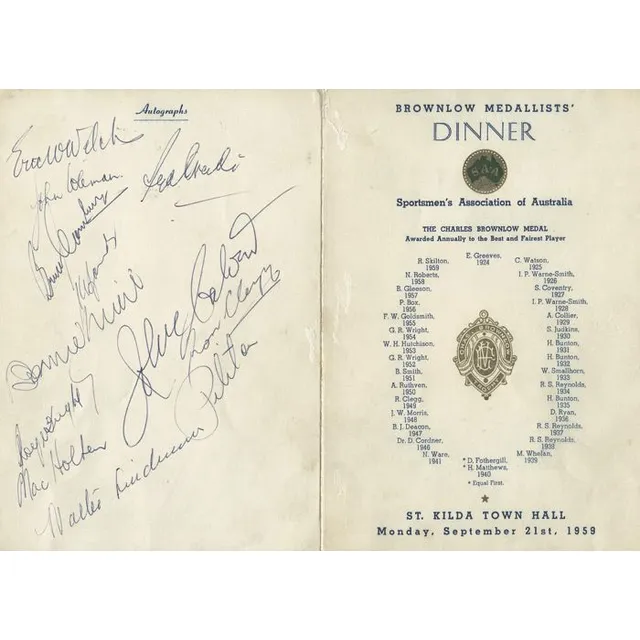 Autographs
John Coleman
Mac Holten
Ron Clegg
BROWNLOW MEDALLISTS'
DINNER
SAA
Sportsmen's Association of Australia
THE CHARLES BROWNLOW MEDAL
Awarded Annually to the Best and Fairest Player
E. Greeves,
1924
R. Skilton,
1959
N. Roberts,
1958
B. Gleeson,
1957
P. Box,
1956
F. W. Goldsmith,
1955
G. R. Wright,
1954
W. H. Hutchison,
1953
G. R. Wright,
1952
B. Smith,
1951
A. Ruthven,
1950
R. Clegg,
1949
J. W. Morris,
1948
B. J. Deacon,
1947
Dr. D. Cordner,
1946
N. Ware,
1941
C. Watson,
1925
I. P. Warne-Smith,
1926
S. Coventry,
1927
I. P. Warne-Smith,
1928
A. Collier,
1929
S. Judkins,
1930
H. Bunton,
1931
H. Bunton,
1932
W. Smallhorn,
1933
R. S. Reynolds,
1934
H. Bunton,
1935
D. Ryan,
1936
R. S. Reynolds,
1937
R. S. Reynolds,
1938
M. Whelan,
1939
* D. Fothergill,
* H. Matthews,
1940
* Equal First.
ST. KILDA TOWN HALL
Monday, September 21st, 1959